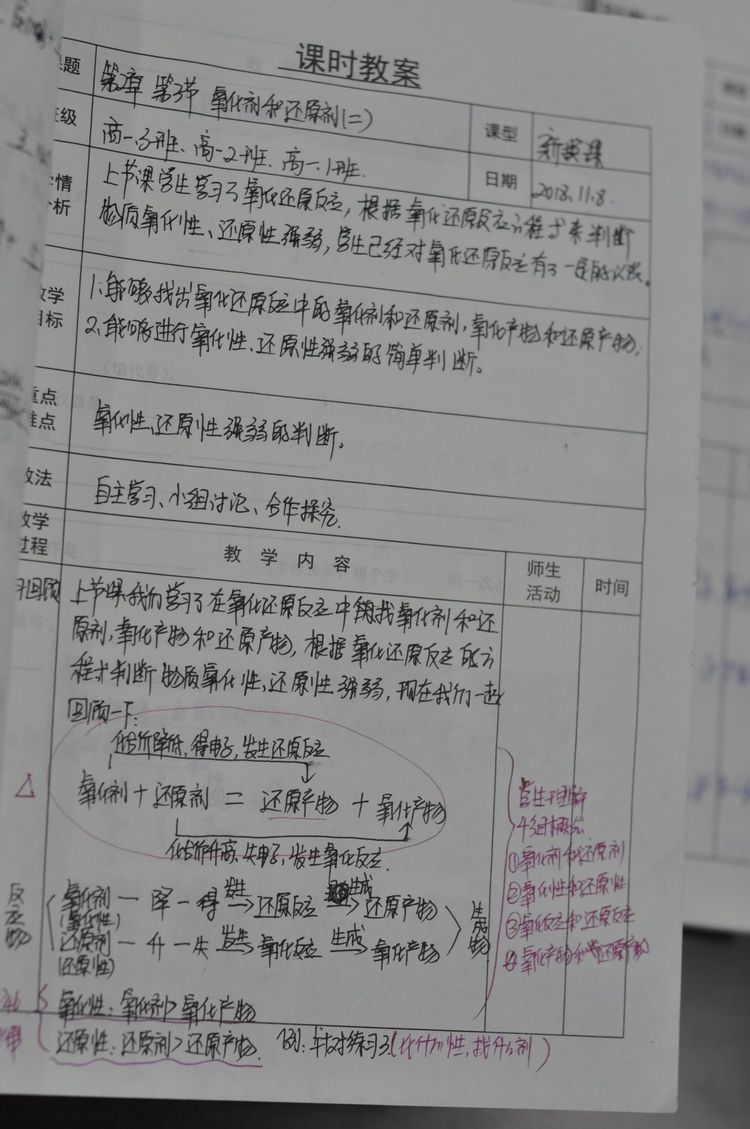 课时教案
课题 第2章 第3节 氧化剂和还原剂(二) 课型 新授课
班级 高一.3班、高一.2班、高一.1班. 日期 2018.11.8.
学情分析 上节课学生学习了氧化还原反应,根据氧化还原反应方程式来判断
物质氧化性、还原性强弱,学生已经对氧化还原反应有了一定的认识。
教学目标 1.能够找出氧化还原反应中的氧化剂和还原剂,氧化产物和还原产物;
2.能够进行氧化性、还原性强弱的简单判断。
重点难点 氧化性、还原性强弱的判断。
教法 自主学习、小组讨论、合作探究.
教学过程 教 学 内 容 师生活动 时间
回顾 上节课我们学习了在氧化还原反应中找氧化剂和还
原剂,氧化产物和还原产物,根据氧化还原反应的方
程式判断物质氧化性、还原性强弱,现在我们一起
回顾一下:
化合价降低,得电子,发生还原反应
△ 氧化剂 + 还原剂 = 还原产物 + 氧化产物
化合价升高,失电子,发生氧化反应.
学生理解
4组概念
①氧化剂和还原剂
②氧化性和还原性
③氧化反应和还原反应
④氧化产物和还原产物
反应物
氧化剂 — 降 — 得 发生→ 还原反应 生成→ 还原产物
(氧化性)
还原剂 — 升 — 失 发生→ 氧化反应 生成→ 氧化产物
(还原性)
生成物
氧化性:氧化剂>氧化产物
还原性:还原剂>还原产物. 例:针对练习3(比什么性,找什么剂)